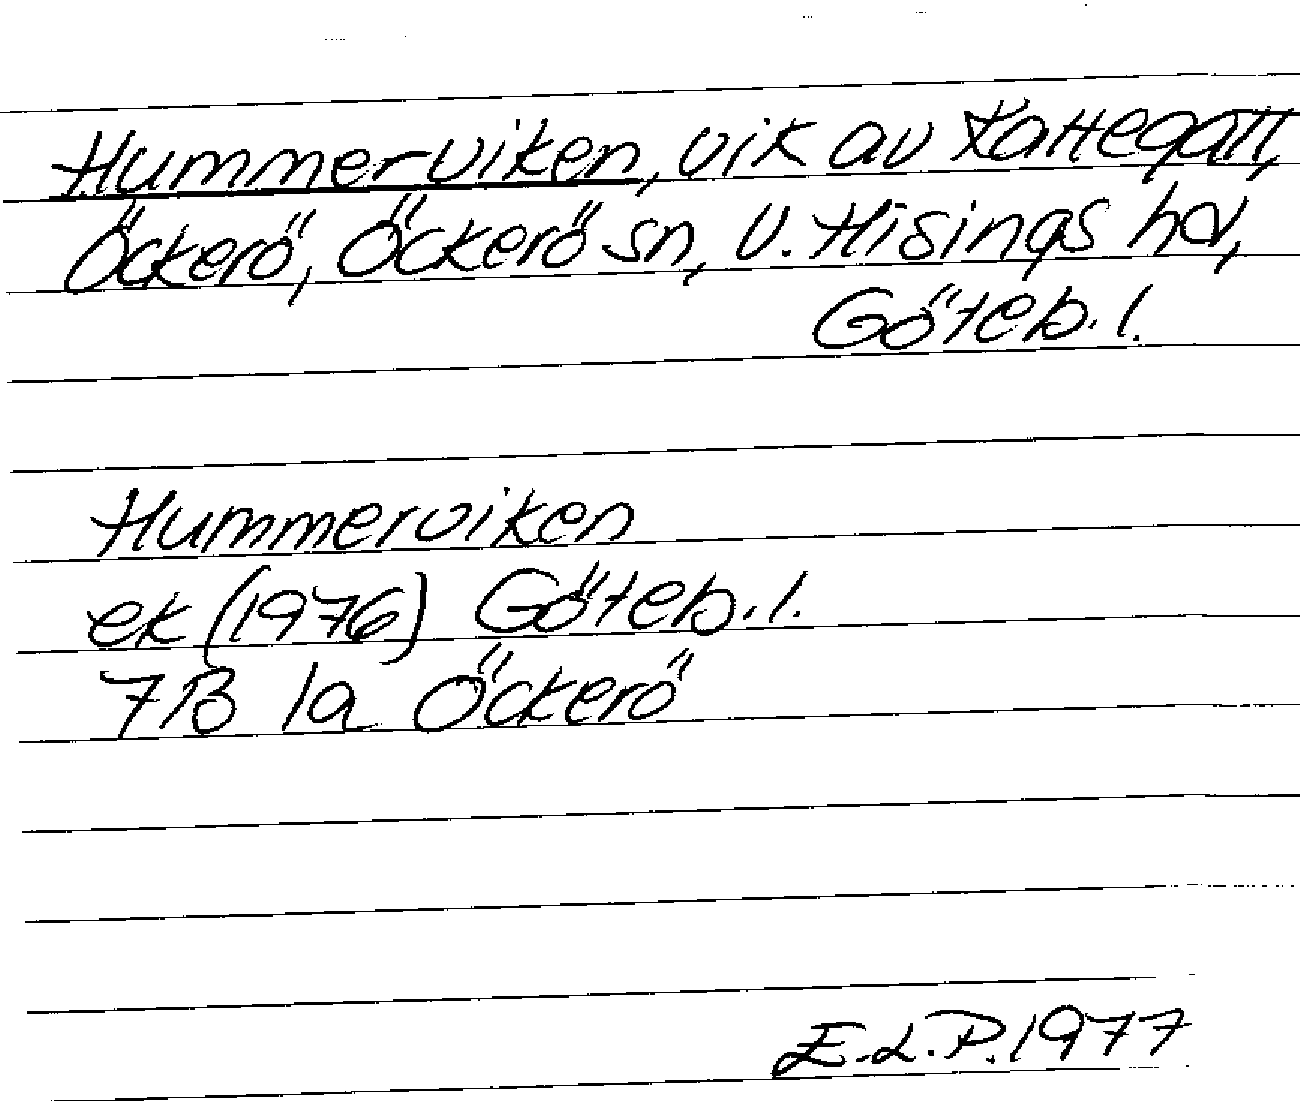 Hummerviken, vik av Kattegatt,
Öckerö, Öckerö sn, V. Hisings hd,
Göteb. l.
Hummerviken
ek (1976) Göteb. l.
7B 1a Öckerö
E.L.P. 1977